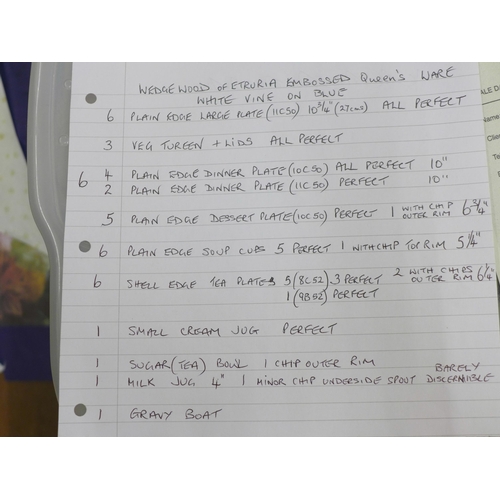 WEDGEWOOD OF ETRURIA EMBOSSED Queen's WARE
WHITE VINE ON BLUE
6 PLAIN EDGE LARGE PLATE (11C50) 10 3/4" (27cms) ALL PERFECT
3 VEG TUREEN + LIDS ALL PERFECT
6 4 PLAIN EDGE DINNER PLATE (10C50) ALL PERFECT 10"
2 PLAIN EDGE DINNER PLATE (11C50) PERFECT 10"
5 PLAIN EDGE DESSERT PLATE (10C50) PERFECT 1 WITH CHIP OUTER RIM 6 3/4"
6 PLAIN EDGE SOUP CUPS 5 PERFECT 1 WITH CHIP TOP RIM 5 1/4"
6 SHELL EDGE TEA PLATES 5 (8C52) 3 PERFECT 2 WITH CHIPS OUTER RIM 6 1/4"
1 (9B52) PERFECT
1 SMALL CREAM JUG PERFECT
1 SUGAR (TEA) BOWL 1 CHIP OUTER RIM
1 MILK JUG 4" 1 MINOR CHIP UNDERSIDE SPOUT BARELY DISCERNIBLE
1 GRAVY BOAT